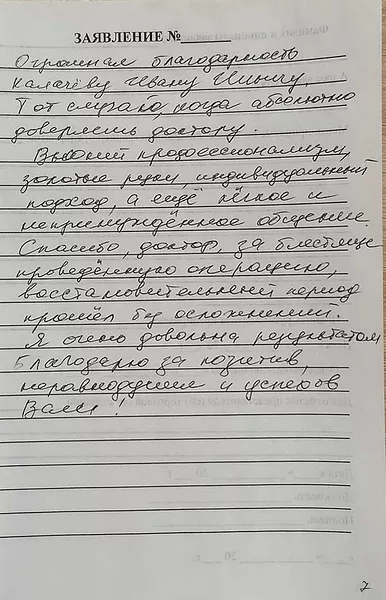 ЗАЯВЛЕНИЕ №
Огромная благодарность
Калачёву Ивану Ильичу.
Тот случай, когда абсолютно
доверяешь доктору.
Высокий профессионализм,
золотые руки, индивидуальный
подход, а ещё лёгкое и
непринуждённое общение.
Спасибо, доктор, за блестяще
проведённую операцию,
восстановительный период
прошёл без осложнений.
Я очень довольна результатом
Благодарю за позитив,
неравнодушие и успехов
Вам!
7